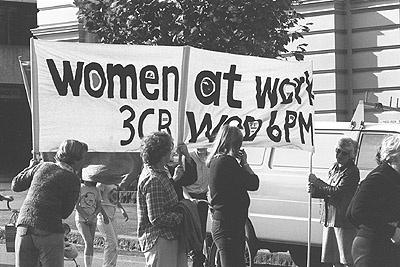 women at work
3CR WED 6PM